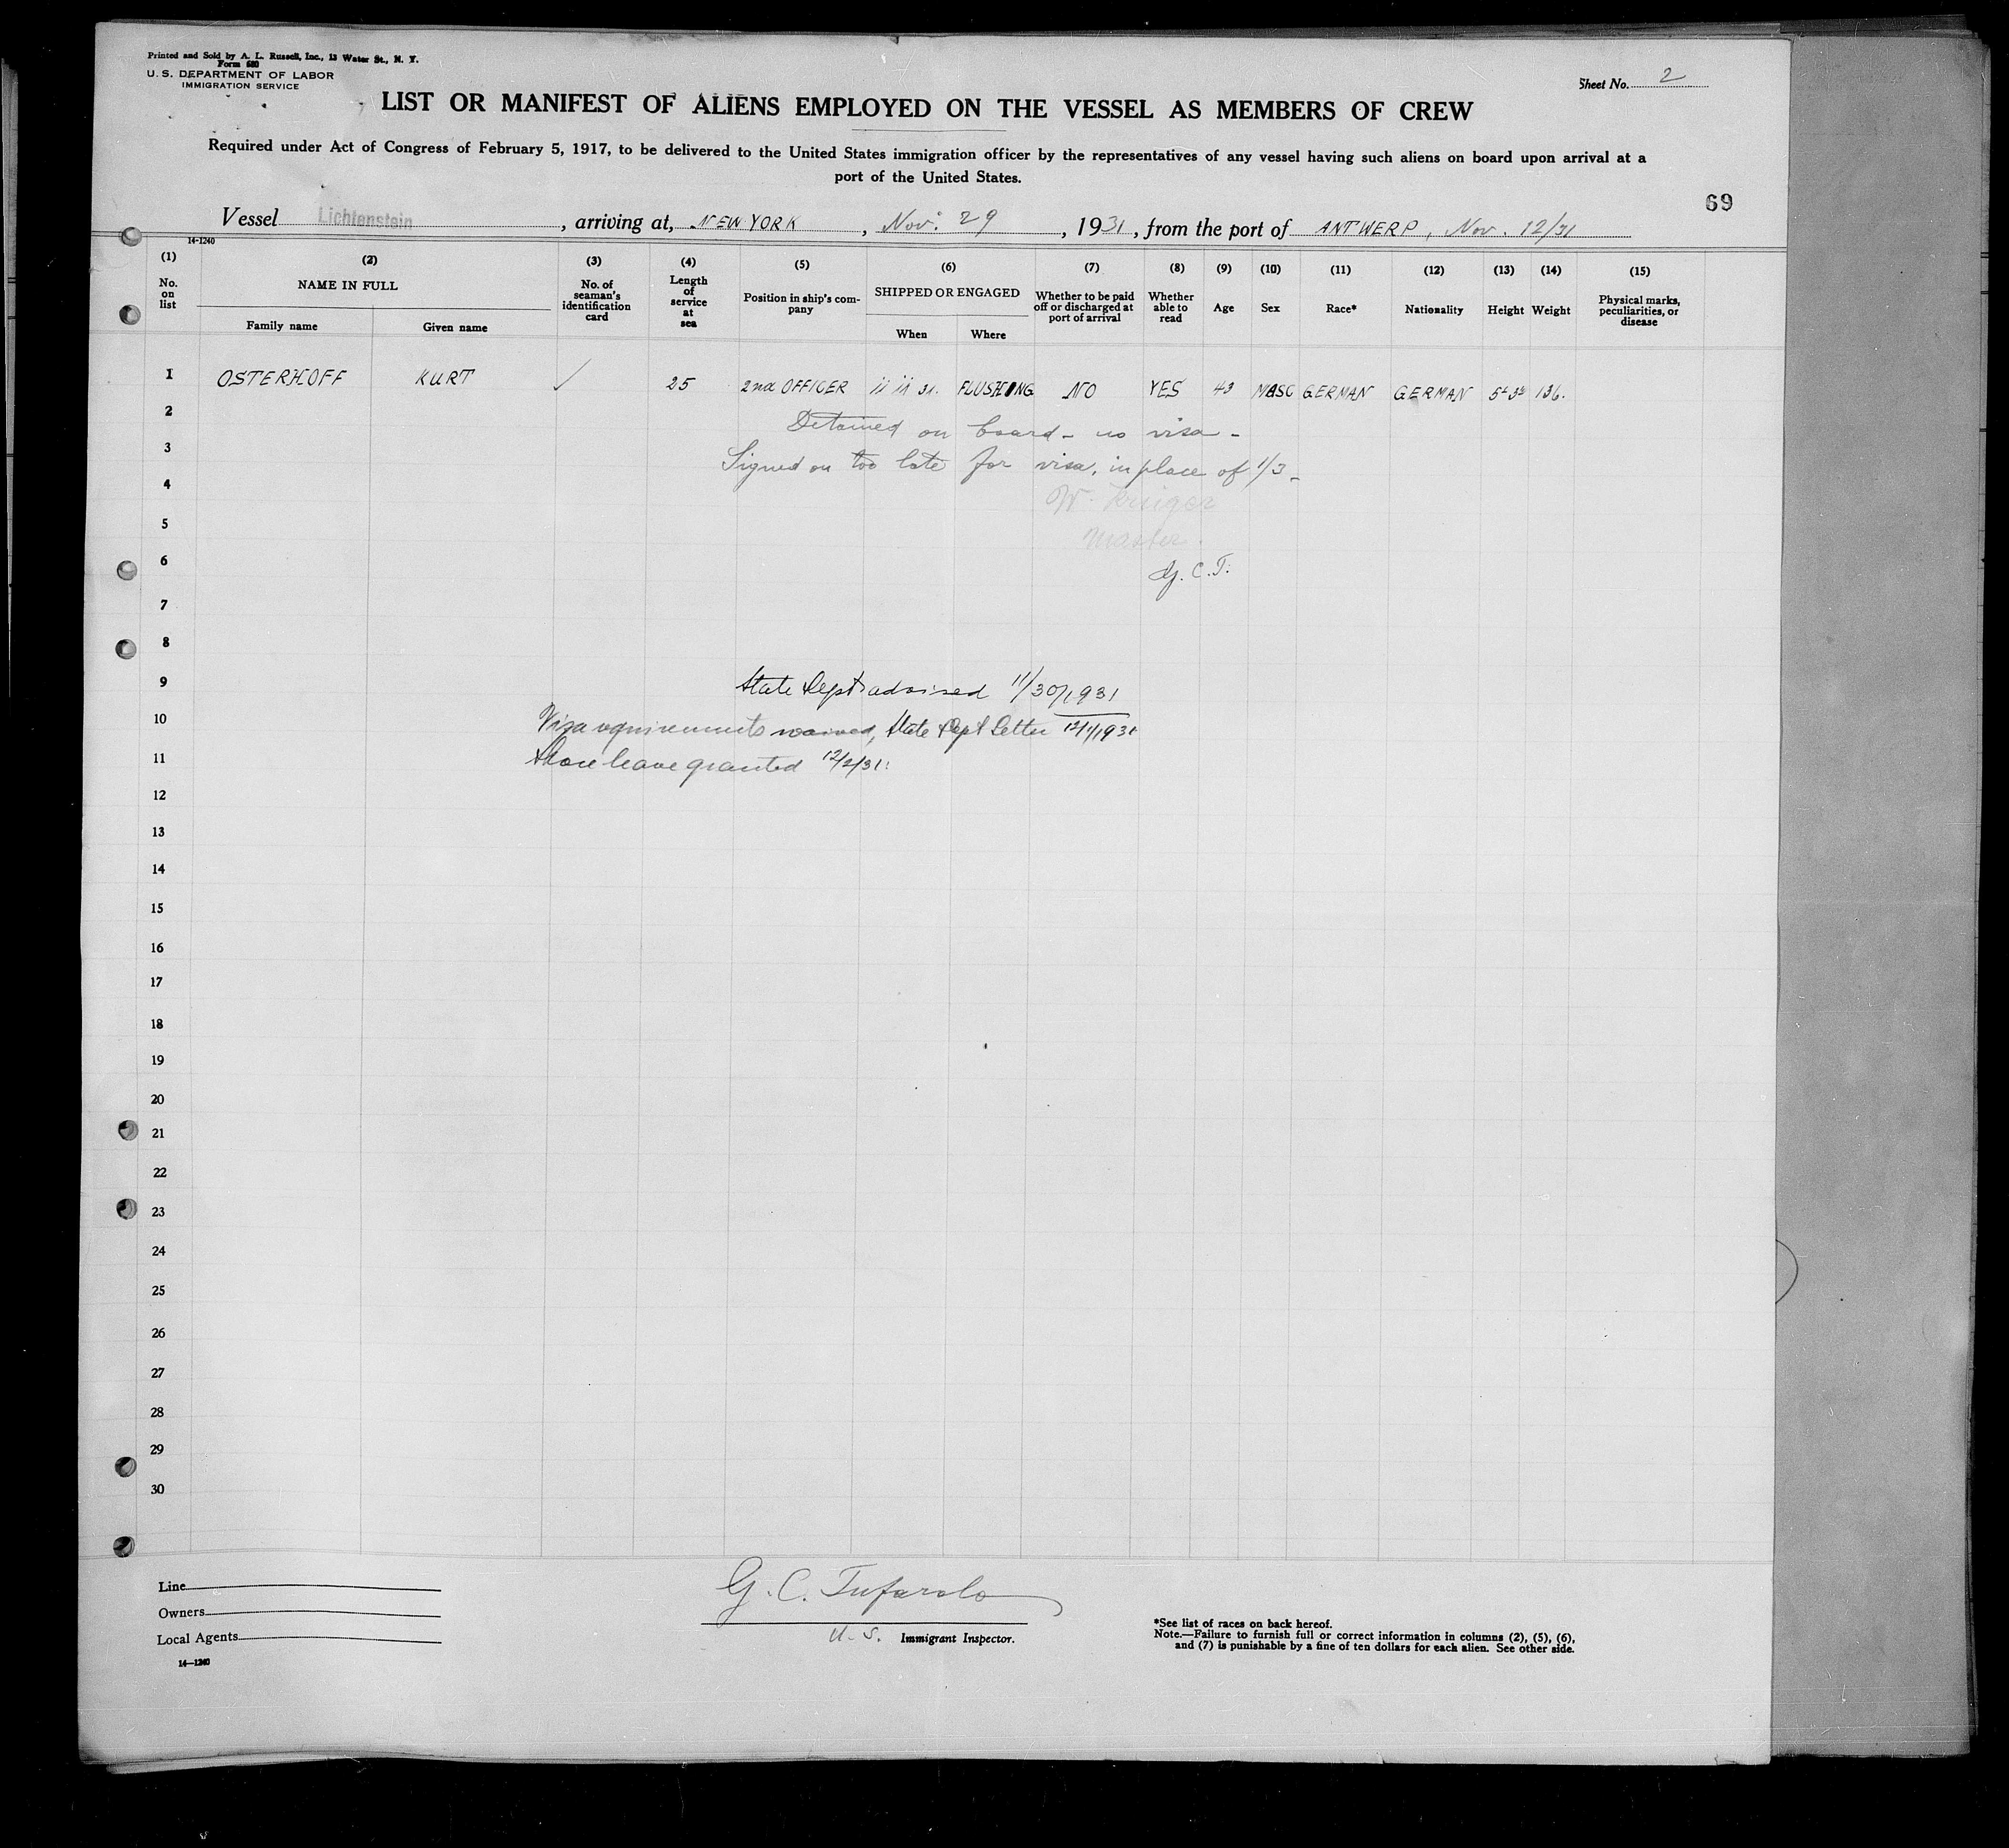 Printed and Sold by A. L. Russell, Inc., 13 Water St., N. Y.
Form 680
U. S. DEPARTMENT OF LABOR
IMMIGRATION SERVICE
Sheet No. 2
LIST OR MANIFEST OF ALIENS EMPLOYED ON THE VESSEL AS MEMBERS OF CREW
Required under Act of Congress of February 5, 1917, to be delivered to the United States immigration officer by the representatives of any vessel having such aliens on board upon arrival at a
port of the United States.
69
Vessel Lichtenstein, arriving at, NEW YORK, Nov. 29, 1931, from the port of ANTWERP, Nov. 12/31
14-1240
(1) (2) (3) (4) (5) (6) (7) (8) (9) (10) (11) (12) (13) (14) (15)
No. on list
NAME IN FULL
Family name
Given name
No. of seaman's identification card
Length of service at sea
Position in ship's company
SHIPPED OR ENGAGED
When
Where
Whether to be paid off or discharged at port of arrival
Whether able to read
Age
Sex
Race*
Nationality
Height
Weight
Physical marks, peculiarities, or disease
1 OSTERHOFF KURT ✓ 25 2nd OFFICER 11 11 31. FLUSHING NO YES 43 MASC GERMAN GERMAN 136.
2 Detained on board - no visa -
3 Signed on too late for visa, in place of 1/3 -
4 W. Krüger
5 Master.
6 G. C. T.
7
8
9 State Dept advised 11/30/1931
10 Visa requirements waived, State Dept Letter 12/1/1931
11 Shore leave granted 12/2/31.
12
13
14
15
16
17
18
19
20
21
22
23
24
25
26
27
28
29
30
Line
Owners
Local Agents
14—1240
G. C. Tufarolo
U. S. Immigrant Inspector.
*See list of races on back hereof.
Note.—Failure to furnish full or correct information in columns (2), (5), (6),
and (7) is punishable by a fine of ten dollars for each alien. See other side.